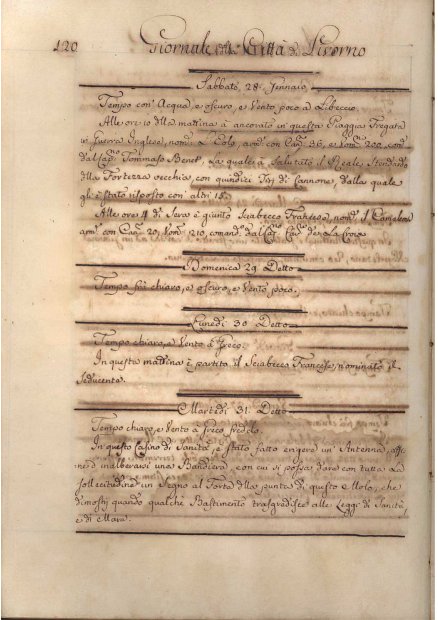 120 Giornale della Città di Livorno
Sabbato, 28. Gennaio
Tempo con Acqua, e oscuro, e Vento poco à Libeccio.
Alle ore 10 della mattina à ancorato in questa Piaggia Fregata
in Guerra Inglese, nom. L'Eolo, arm. con Can. 36, e Uom. 200, com.
dal Cap.no Tommaso Benet, la quale à salutato il Reale Stendardo
della Fortezza vecchia con quindici Tiri di Cannone, dalla quale
gli è stato risposto con altri 15.
Alle ore 4 di Sera è giunto Sciabecco Francese, nom. il
arm. con Can. 20, Uom. 210, comand. dal Cap. Cav. de la Croix
Domenica 29 Detto
Tempo più chiaro, e oscuro, e Vento poco.
Lunedì 30 Detto
Tempo chiaro, e Vento à Greco.
In questa mattina è partito il Sciabecco Francese, nominato il
Seducente.
Martedì 31. Detto
Tempo chiaro, e Vento à Greco freddo.
In questo Casino di Sanità, è stato fatto erigere un' Antenna, affi=
ne d' inalberarsi una Bandiera, con cui si possa dare con tutta la
sollecitudine un Segno al Forte della punta di questo Molo, che
dimostri quando qualche Bastimento trasgredisce alle Leggi di Sanità
e di Mare.